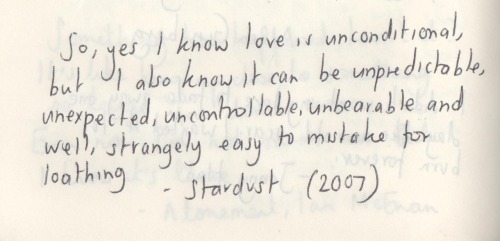 So, yes I know love is unconditional,
but I also know it can be unpredictable,
unexpected, uncontrollable, unbearable and
well, strangely easy to mistake for
loathing
- Stardust (2007)